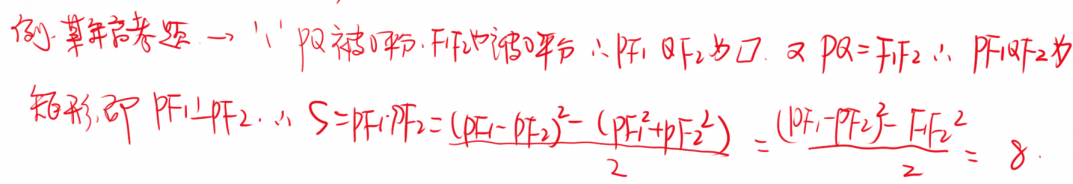 例. 某年高考题 → ∵ PQ被O平分. F₁F₂也被O平分 ∴ PF₁QF₂为▱. 又 PQ=F₁F₂ ∴ PF₁QF₂为
矩形, 即 PF₁⊥PF₂. ∴ S=PF₁·PF₂= \frac{(PF₁-PF₂)²-(PF₁²+PF₂²)}{2} = \frac{(PF₁-PF₂)²-F₁F₂²}{2} = 8.